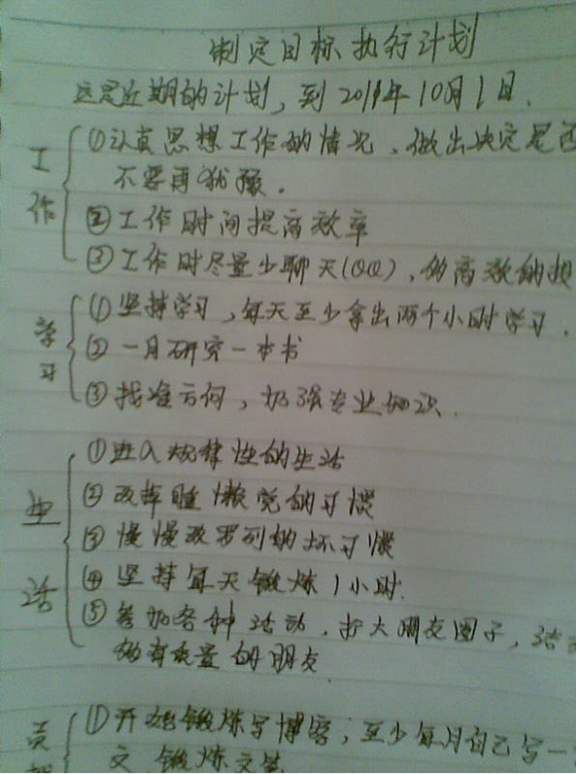 制定目标执行计划
这是近期的计划，到2011年10月1日．
工作
①认真思想工作的情况，做出决定是否
不要再犹豫．
②工作时间提高效率
③工作时尽量少聊天(QQ)，的高效的
学习
①坚持学习，每天至少拿出两个小时学习．
②一月研究一本书
③找准方向，加强专业知识．
生活
①进入规律性的生活
②改掉睡懒觉的习惯
③慢慢改罗列的坏习惯
④坚持每天锻炼1小时．
⑤参加各种活动，扩大朋友圈子，结
的有质量的朋友
①开始锻炼写博客，至少每月自己写一
文，锻炼文笔